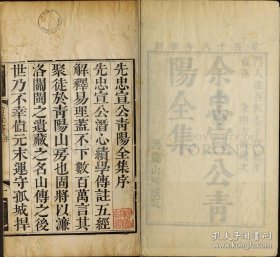 余忠宣公青
陽全集
先忠宣公青陽全集序
先忠宣公潛心績學傳註五經
解釋易理蓋不下數百萬言其
聚徒於青陽山房也固將以濂
洛關閩之遺藏之名山傳之後
世乃不幸值元末運守孤城捍